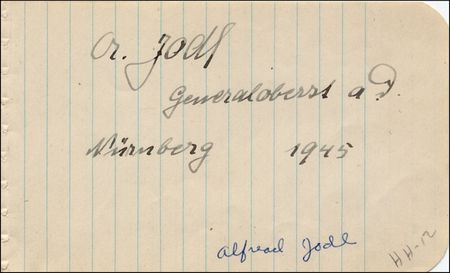 A. Jodl
Generaloberst a D.
Nürnberg 1945
Alfread Jodl
HH-12